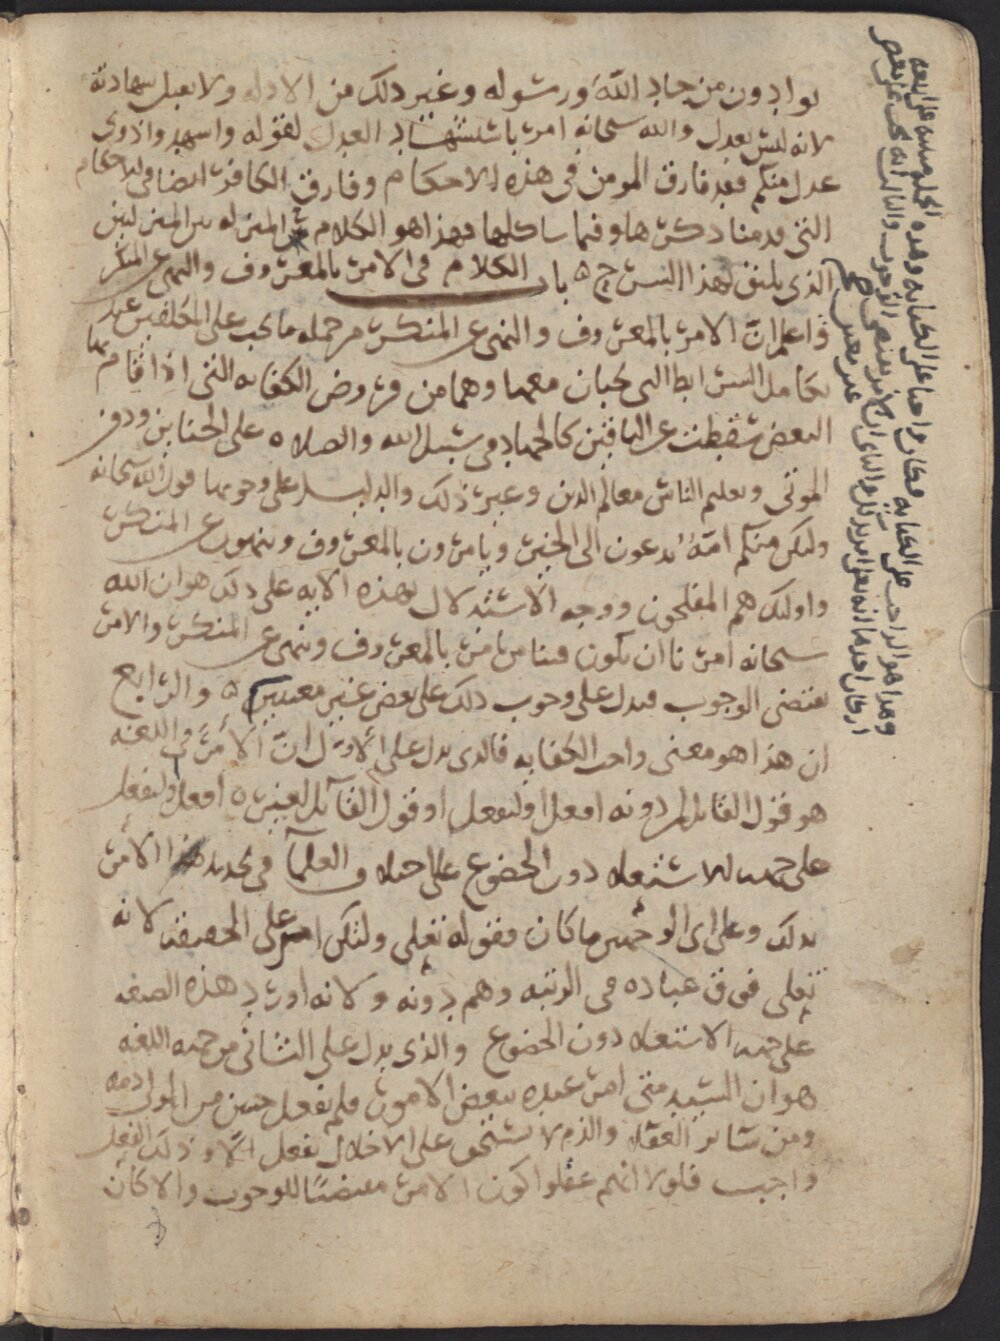 يوادون من حاد الله ورسوله وغير ذلك من الادلة ولا يقبل شهادته
لانه ليس بعدل والله سبحانه امر باستشهاد العدل لقوله واشهدوا ذوى
عدل منكم فقد فارق المومن فى هذه الاحكام وفارق الكافر ايضا فى الاحكام
التى قدمنا ذكرها وفيما شاكلها فهذا هو الكلام فى المنزله بين المنزلتين
الذى يليق بهذا الشرح ه باب الكلام فى الامر بالمعروف والنهى عن المنكر
واعلم ان الامر بالمعروف والنهى عن المنكر من جمله ما يجب على المكلفين عند
تكامل الشرايط التى يجبان معها وهما من فروض الكفايه التى اذا قام بها
البعض سقطت عن الباقين كالجهاد فى سبيل الله والصلاه على الجنايز ودفن
الموتى وتعليم الناس معالم الدين وغير ذلك والدليل على وجوبها قول الله سبحانه
ولتكن منكم امة يدعون الى الخير ويامرون بالمعروف وينهون عن المنكر
واولئك هم المفلحون ووجه الاستدلال بهذه الايه على ذلك هو ان الله
سبحانه امرنا ان يكون فينا من يامر بالمعروف وينهى عن المنكر والامر
يقتضى الوجوب فيدل على وجوب ذلك على بعض غير معين ه والرابع
ان هذا هو معنى واجب الكفايه فالذى يدل على الاول ان الامر فى اللغه
هو قول القايل لمن دونه افعل او ليفعل او قول القايل لغيره افعل او ليفعل
على جهه الاستعلاء دون الخضوع على اختلاف العلماء فى تحديد هذا الامر
بذلك وعلى اى الوجهين ما كان فقوله تعلى ولتكن امر على الحقيقه لانه
تعلى فوق عباده فى الرتبه وهم دونه ولانه اورد هذه الصيغه
على جهه الاستعلاء دون الخضوع والذى يدل على الثانى من جهه اللغه
هو ان السيد متى امر عبده ببعض الامور فلم يفعل حسن من المولى ذمه
ومن سائر العقلاء والذم لا يستحق على الاخلال بفعل الا وذلك الفعل
واجب فلولا انهم عقلوا كون الامر مقتضيا للوجوب والا كان
وهذا هو الواجب على الكفايه فكان واجبا على الكفايه وهذه الجمله مبنيه على اربعه
اركان احدها انه تعلى امر بذلك والثانى ان الامر يقتضى الوجوب والثالث انه يجب على بعض
غير معين